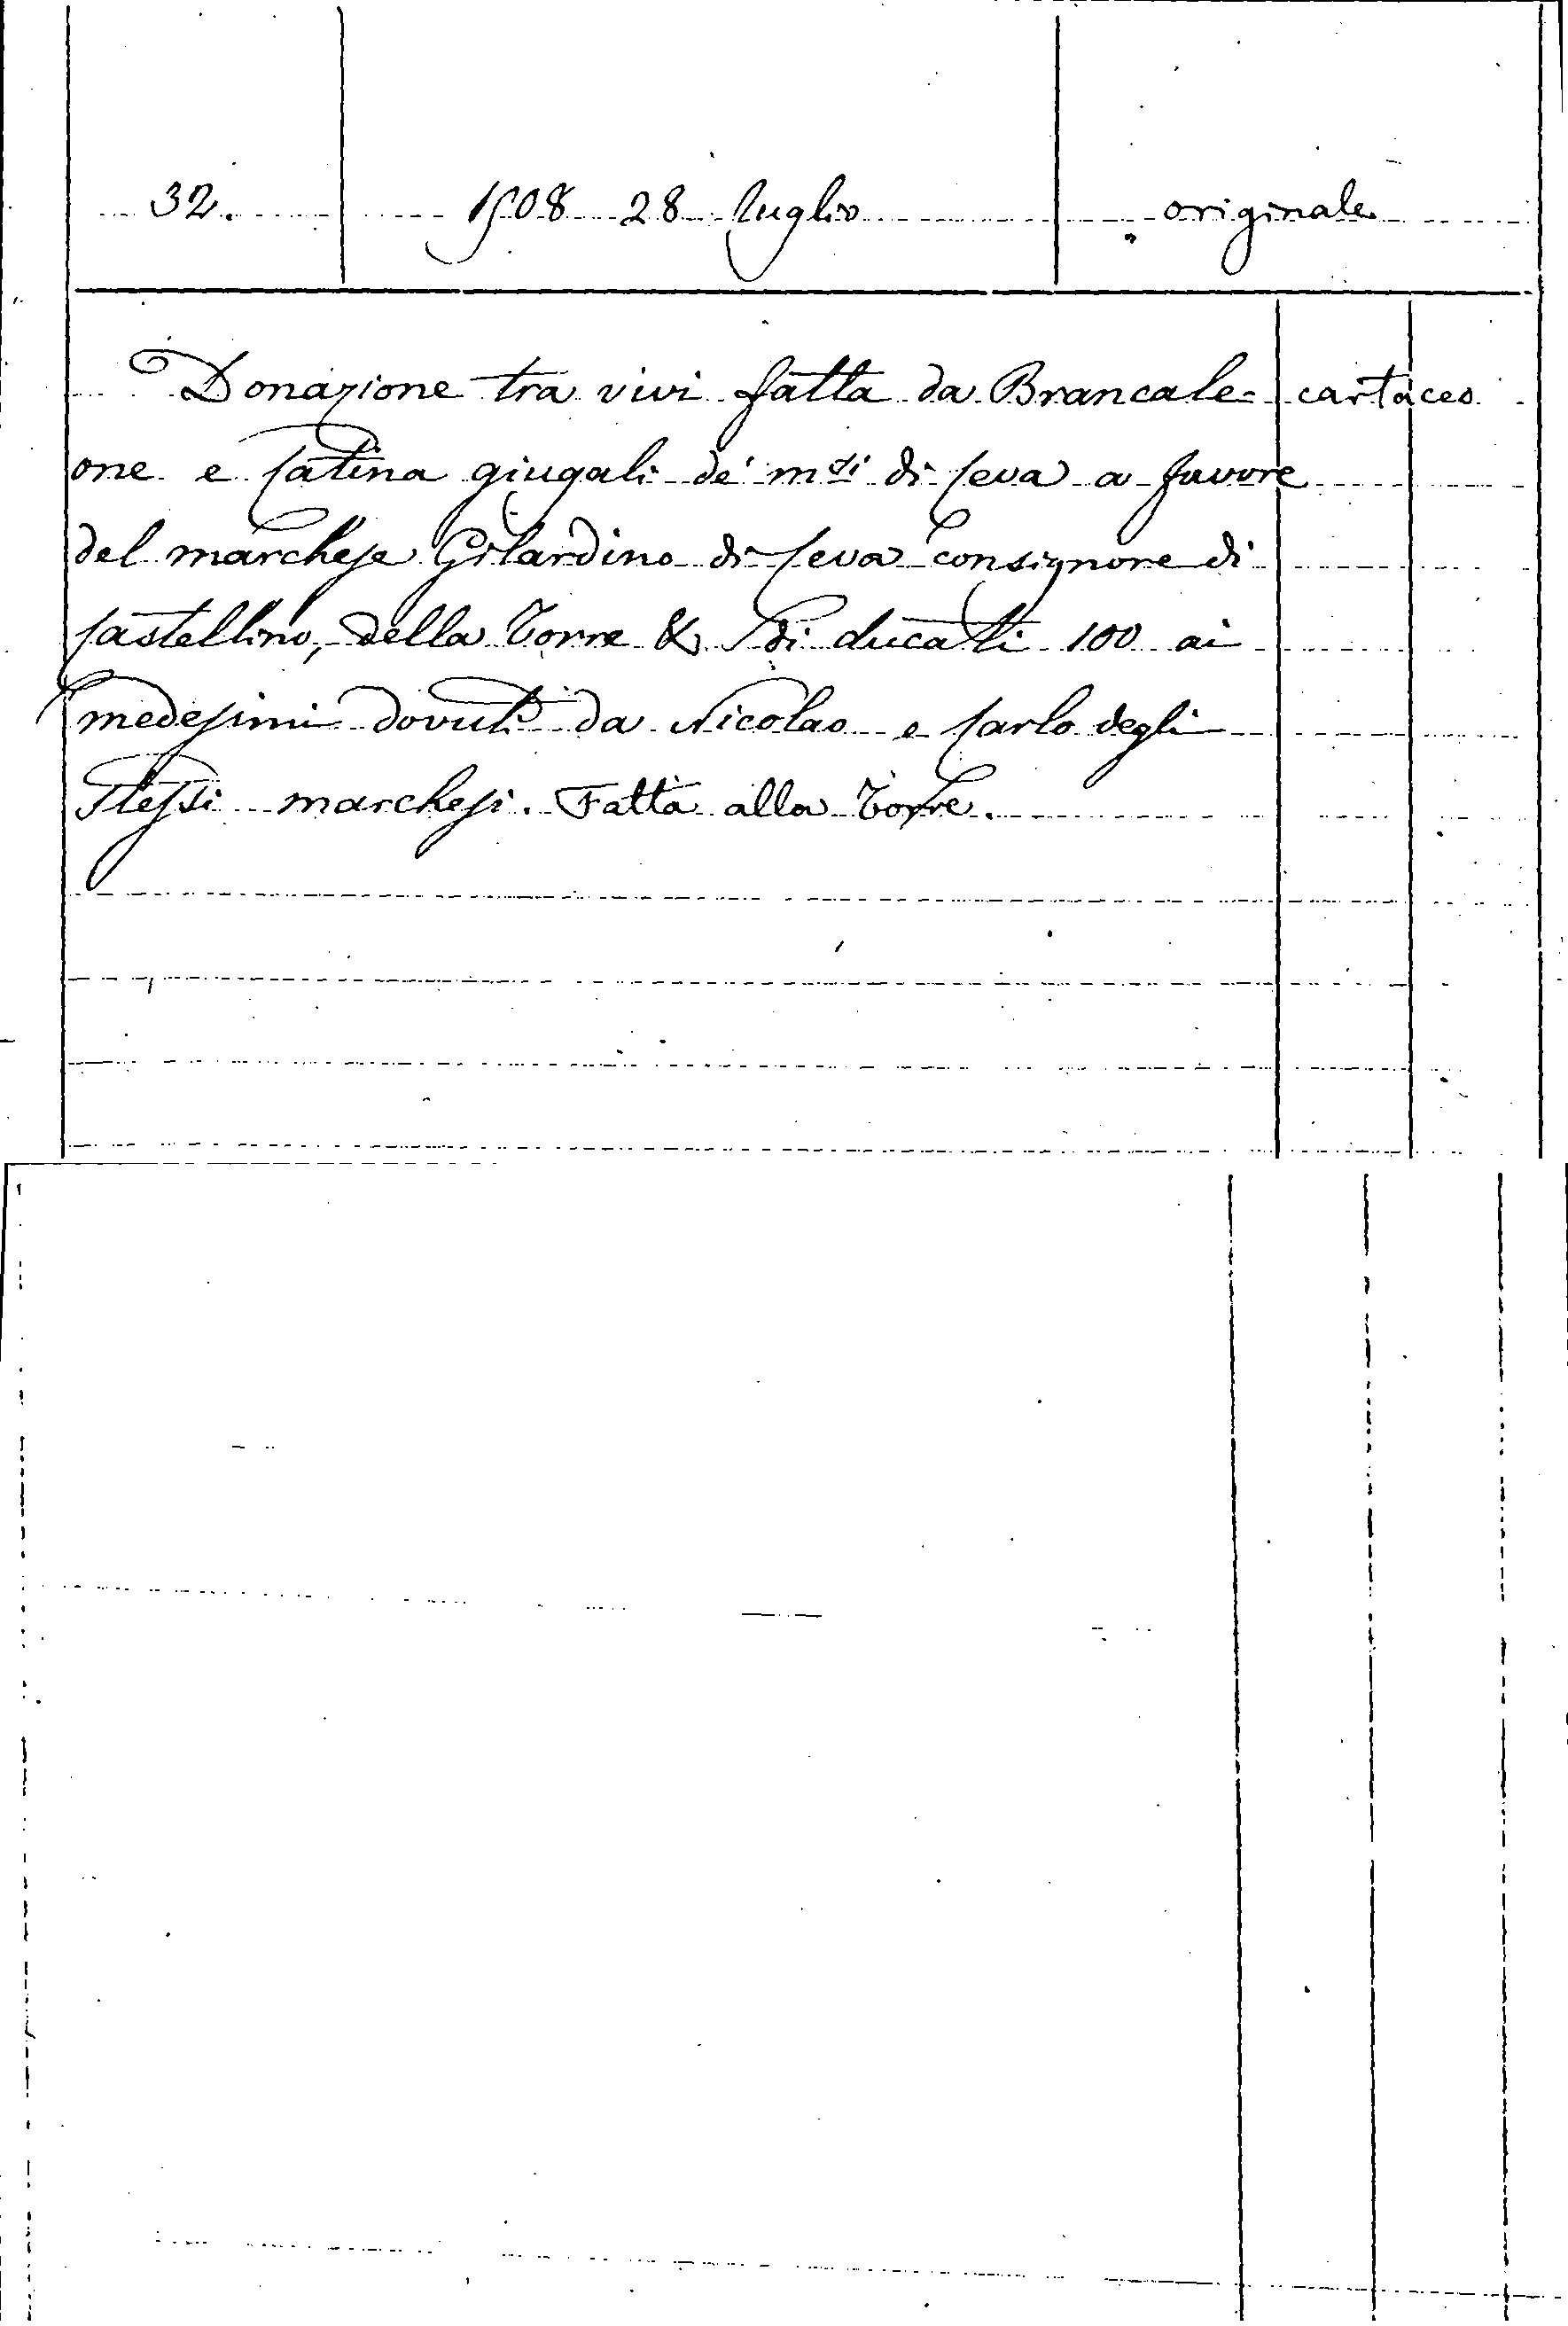 32. 1508 28 luglio originale
Donazione tra vivi fatta da Brancale= cartaceo
one e Catina giugali de' m.si di Ceva a favore
del marchese Gilardino di Ceva consignore di
Castellino, della Torre & di ducati 100 ai
medesimi dovuti da Nicolao e Carlo degli
Stessi marchesi. Fatta alla Torre.